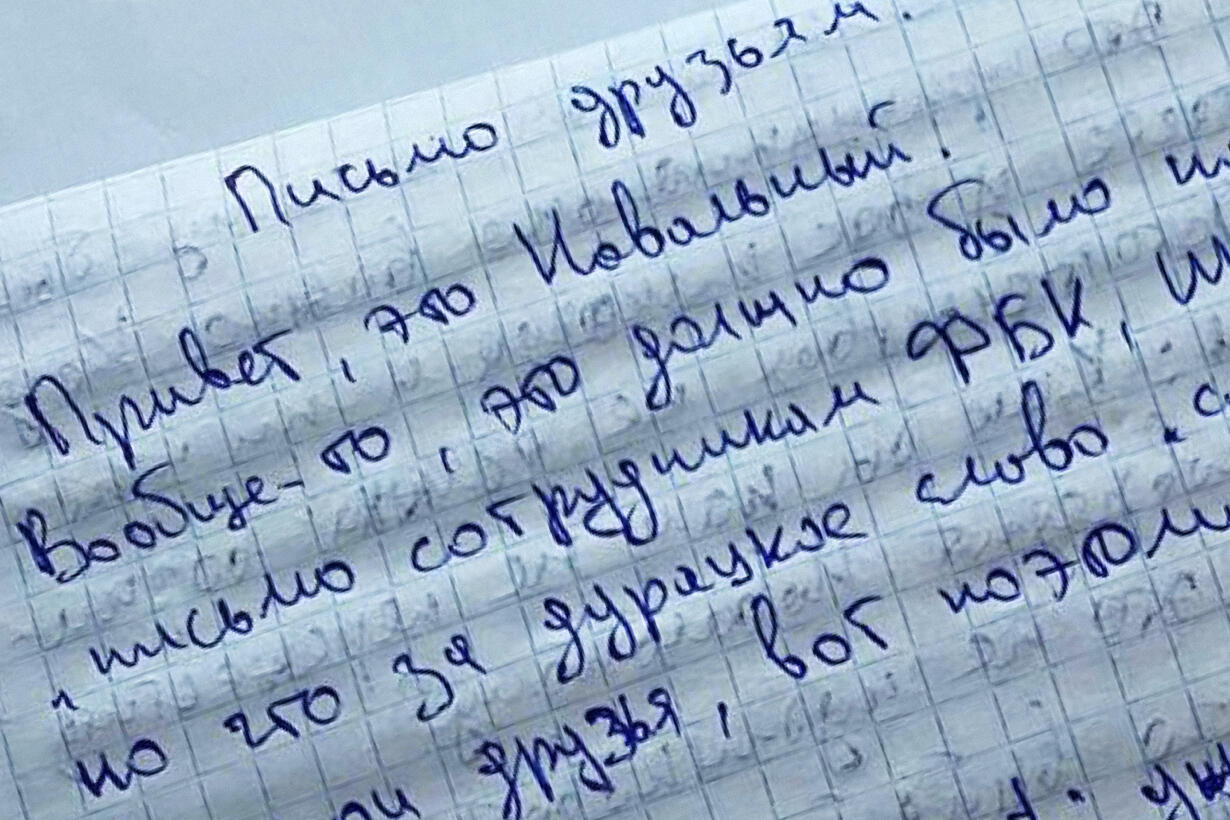 Письмо друзьям.
Привет, это Навальный.
Вообще-то, это должно было
„письмо сотрудникам ФБК,
но что за дурацкое слово „с
друзья, вот поэтом